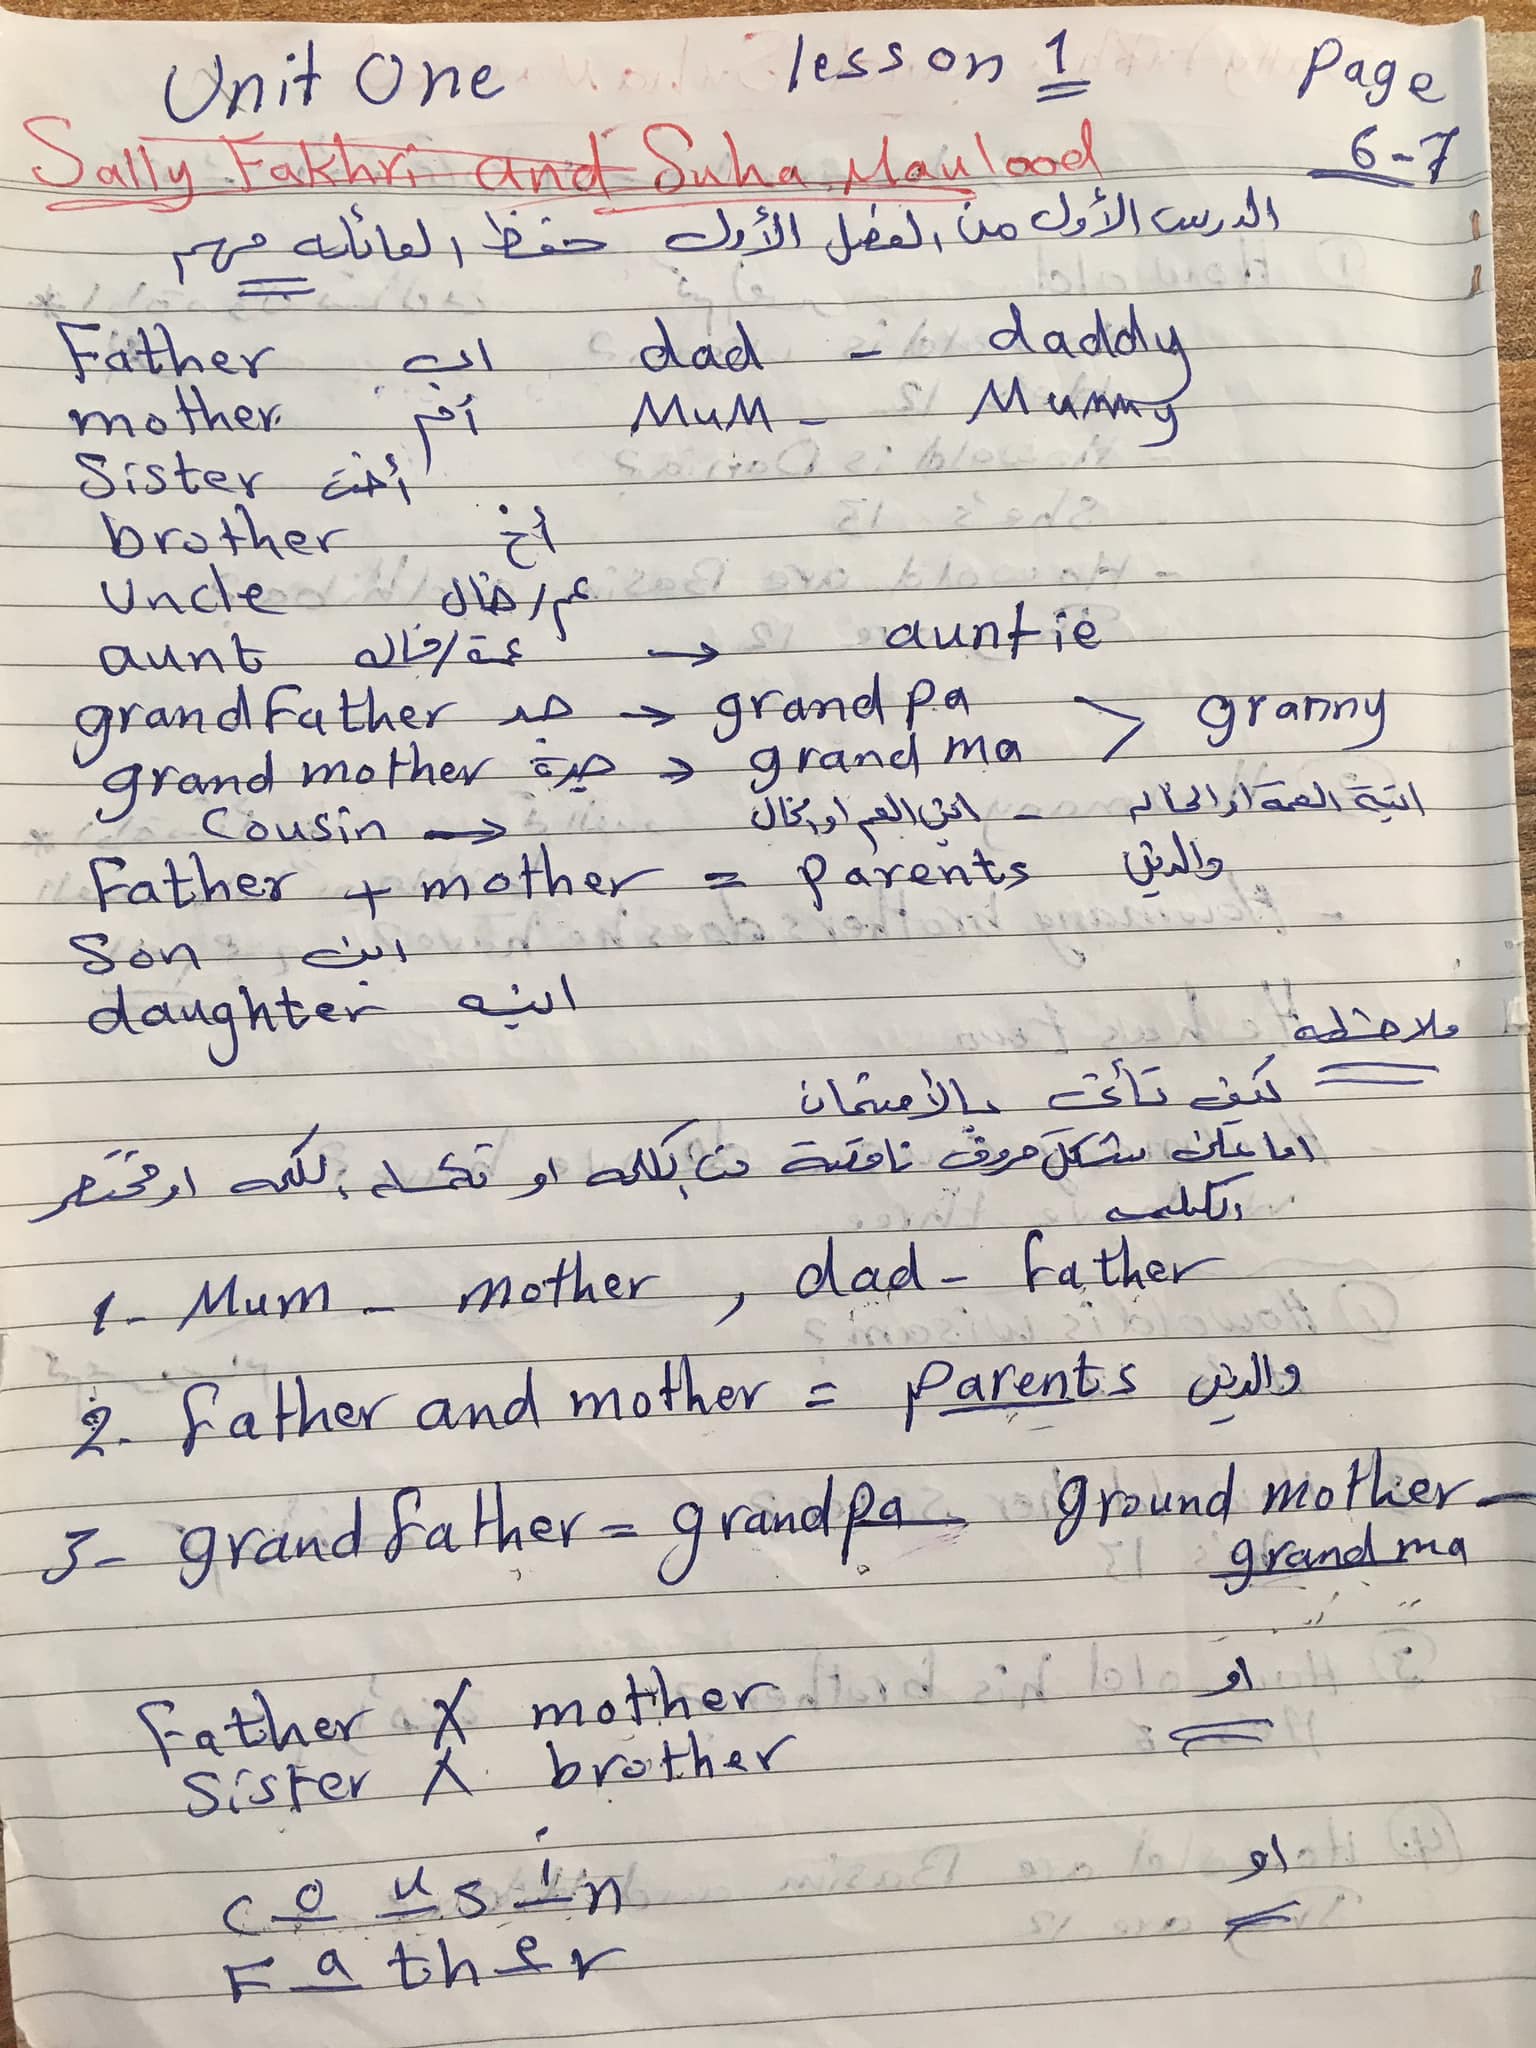 Unit One lesson 1 Page
6-7
Sally Fakhri and Suha Maulood
الدرس الأول من الفصل الأول حفظ العائلة مهم
Father اب dad - daddy
mother أم MuM - Mummy
Sister أخت
brother أخ
Uncle عم/خال
aunt عمة/خاله → auntie
grandfather جد → grandpa > granny
grand mother جدة → grand ma
Cousin → ابن العم او الخال - ابنة العمة او الخاله
Father + mother = parents والدين
Son ابن
daughter ابنه
ملاحظة
كيف تأتي بالأمتحان
اما على شكل حروف ناقصة من الكلمه او تكمله الكلمه او مختصر
الكلمه
1- Mum - mother , dad - father
2- father and mother = parents والدين
3- grandfather = grandpa ground mother -
grand ma
او
Father X mother
Sister X brother
او
c o u s i n
F a t h e r